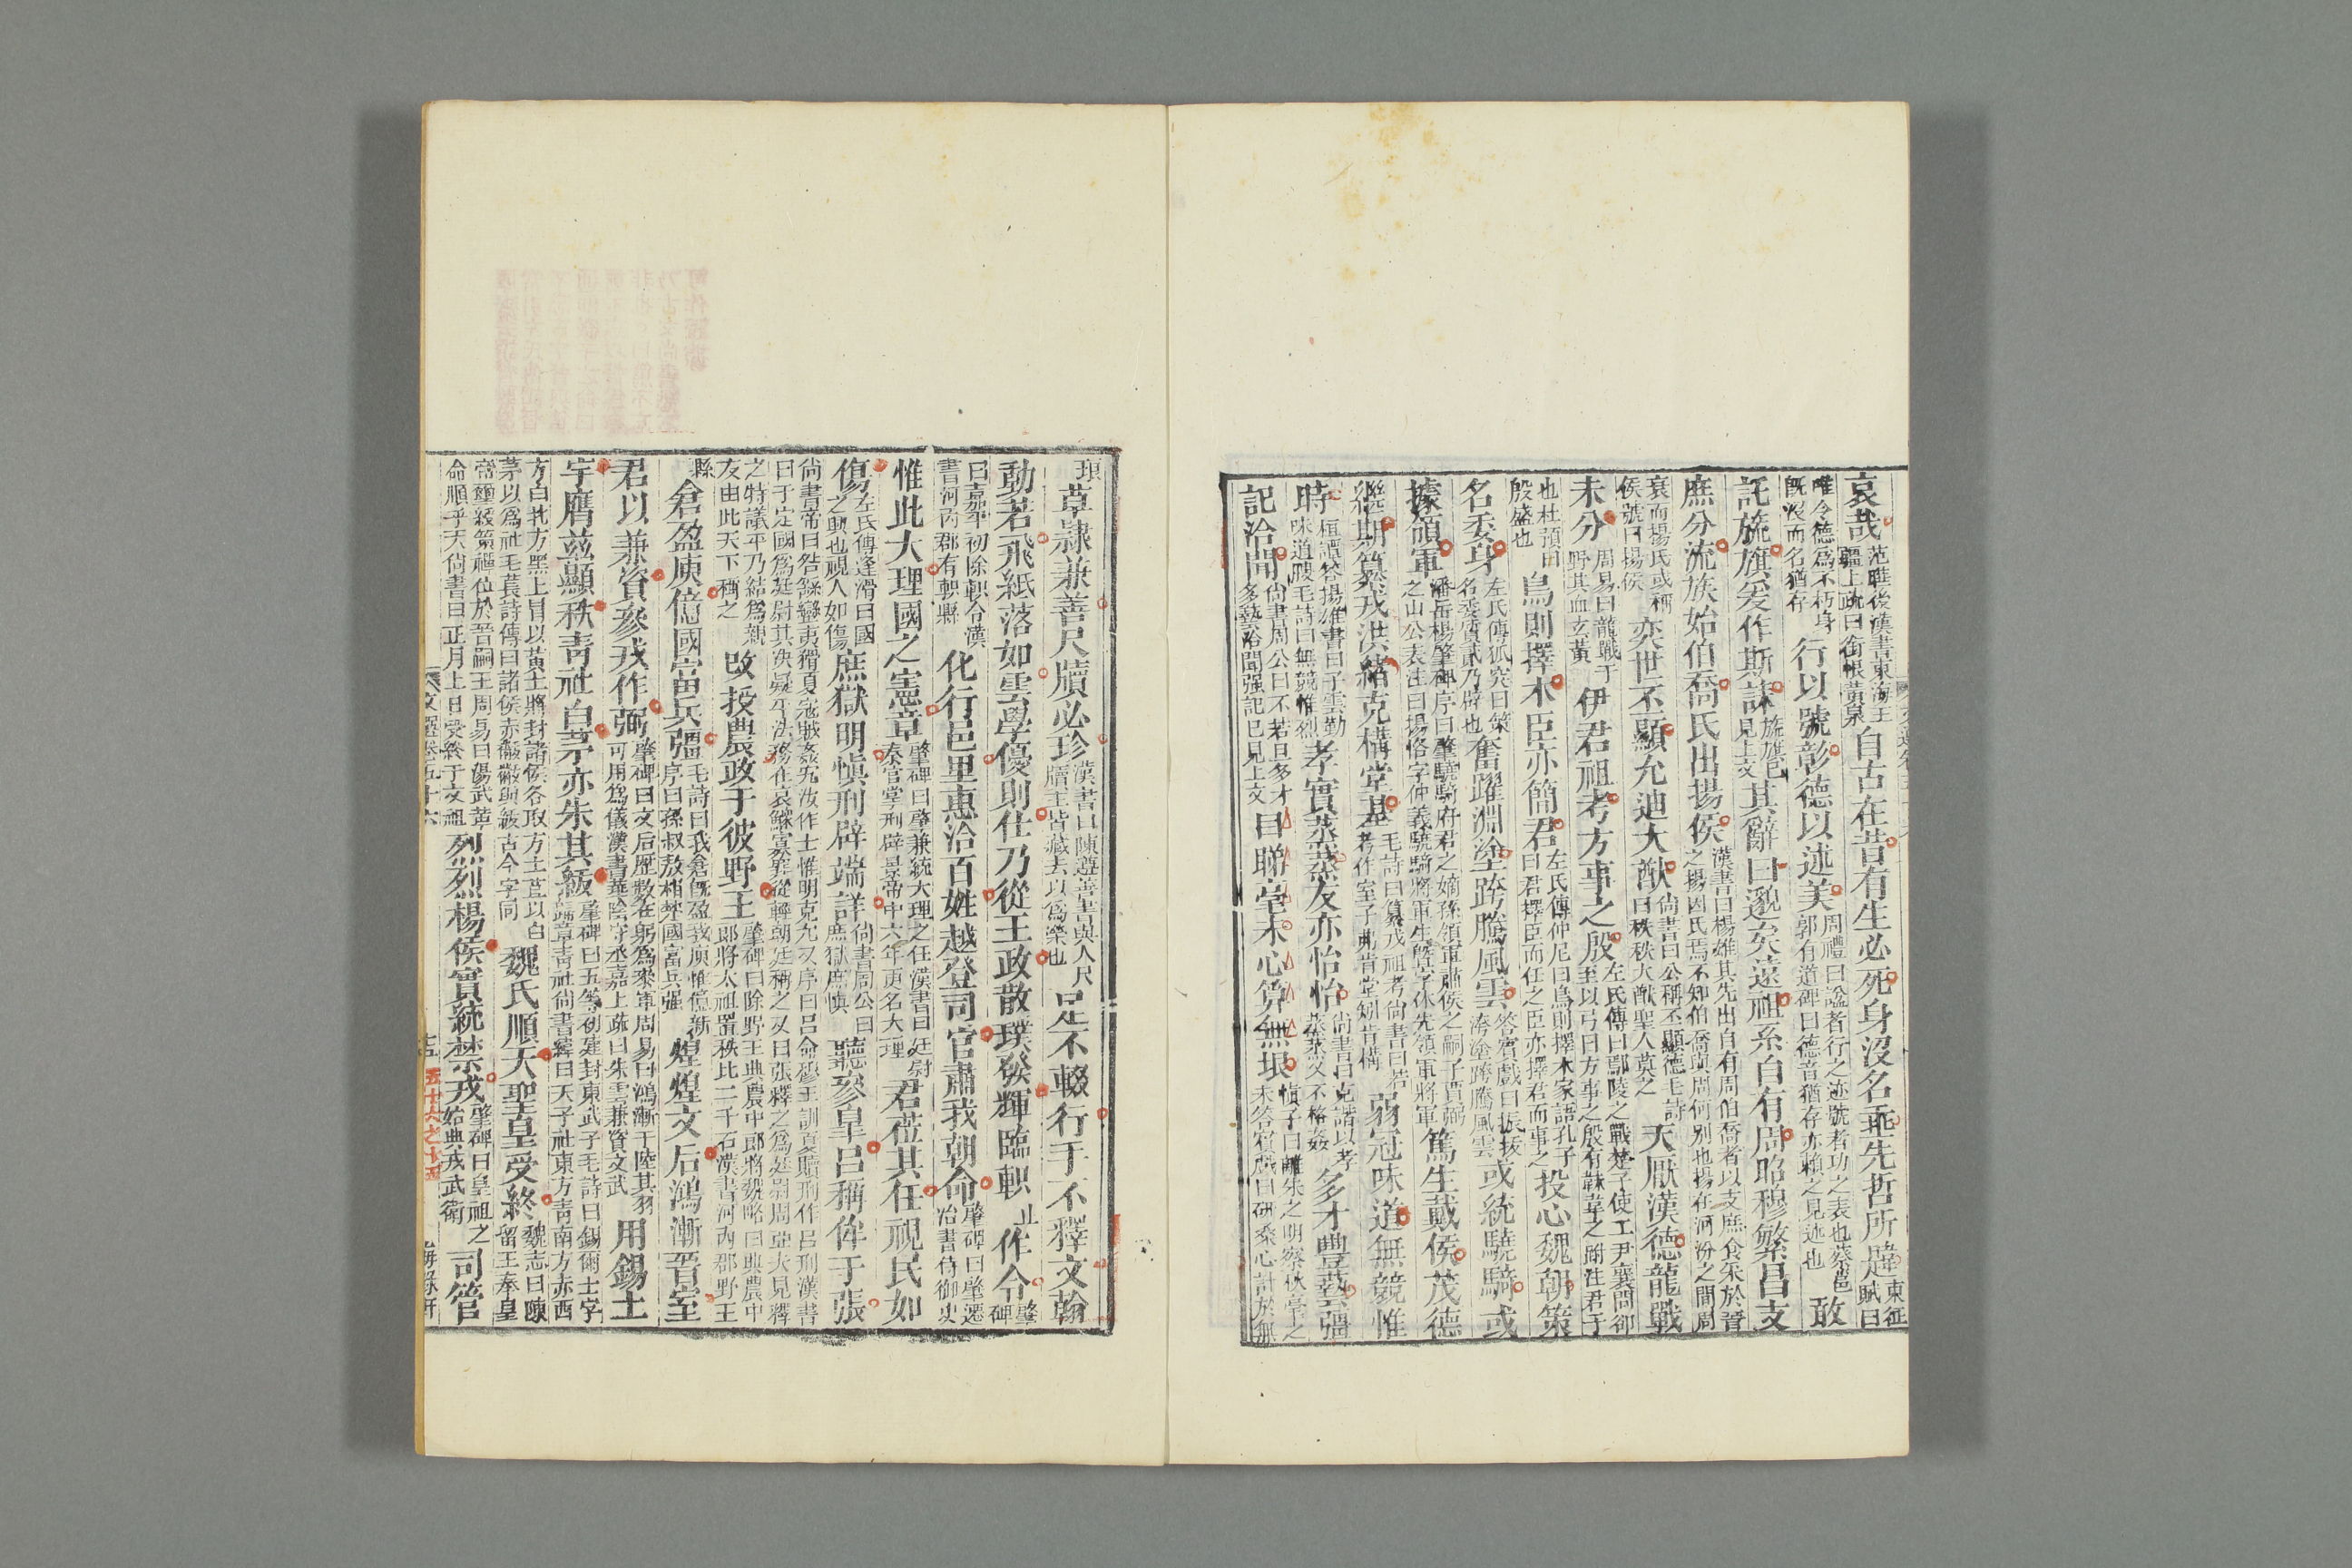 哀哉范曄後漢書東海王疆上疏曰銜恨黃泉自古在昔有生必死身沒名垂先哲所韙東征賦曰
唯令德爲不朽身旣沒而名猶存行以號彰德以述美周禮曰諡者行之迹號者功之表也蔡邕郭有道碑曰德音猶存亦賴之見述也敢
託旐旗爰作斯誄旐旗已見上文其辭曰邈矣遠祖系自有周昭穆繁昌支
庶分流族始伯喬氏出揚侯漢書曰楊雄其先出自有周伯喬者以支庶食采於晉之揚因氏焉不知伯喬周何別也揚在河汾之間周
衰而揚氏或稱侯號曰揚侯奕世丕顯允迪大猷尚書曰公稱丕顯德毛詩曰秩秩大猷聖人莫之天厭漢德龍戰
未分周易曰龍戰于野其血玄黃伊君祖考方事之殷左氏傳曰鄢陵之戰楚子使工尹襄問郤至以弓曰方事之殷有韎韋之跗注君子
也杜預曰殷盛也鳥則擇木臣亦簡君左氏傳仲尼曰鳥則擇木家語孔子曰君擇臣而任之臣亦擇君而事之投心魏朝策
名委身左氏傳狐突曰策名委質貳乃辟也奮躍淵塗跨騰風雲答賓戲曰振拔洿塗跨騰風雲或統驍騎或
據領軍潘岳楊肇碑序曰肇驍騎府君之嫡孫領軍肅侯之嗣子賈弼之山公表注曰楊恪字仲義驍騎將軍生曁字休先領軍將軍篤生戴侯茂德
繼期纂戎洪緒克構堂基毛詩曰纂戎祖考尚書曰若考作室子弗肯堂矧肯構弱冠味道無競惟
時桓譚答揚雄書曰子雲勤味道腴毛詩曰無競惟烈孝實蒸蒸友亦怡怡尚書曰克諧以孝蒸蒸乂不格姦多才豐藝彊
記洽聞尚書周公曰不若旦多才多藝洽聞强記已見上文目睇毫末心算無垠愼子曰離朱之明察秋毫之末答賓戲曰硏桑心計於無
垠草隷兼善尺牘必珍漢書曰陳遵善書與人尺牘主皆藏去以爲榮也足不輟行手不釋文翰
動若飛紙落如雲學優則仕乃從王政散璞發輝臨軹止作令肇碑
曰嘉平初除軹令漢書河內郡有軹縣化行邑里惠洽百姓越登司官肅我朝命肇碑曰肇遷治書侍御史
惟此大理國之憲章肇碑曰肇兼統大理之任漢書曰廷尉秦官掌刑辟景帝中六年更名大理君莅其任視民如
傷左氏傳逢滑曰國之興也視人如傷庶獄明愼刑辟端詳尚書周公曰庶獄庶愼聽參皐呂稱侔于張
尚書帝曰咎繇蠻夷猾夏寇賊姦宄汝作士惟明克允又序曰呂命穆王訓夏贖刑作呂刑漢書曰于定國爲廷尉其決疑平法務在哀鰥寡罪疑從輕朝廷稱之又曰張釋之爲廷尉周亞夫見釋
之特議平乃結爲親友由此天下稱之改授農政于彼野王肇碑曰除野王典農中郎將魏略曰典農中郎將太祖置秩比二千石漢書河內郡野王
縣倉盈庾億國富兵彊毛詩曰我倉旣盈我庾惟億新序曰孫叔敖相楚國富兵强煌煌文后鴻漸晉室
君以兼資參戎作弼肇碑曰文后歷數在躬爲參軍周易曰鴻漸于陸其羽可用爲儀漢書華陰守丞嘉上疏曰朱雲兼資文武用錫土
宇膺茲顯秩靑社白茅亦朱其紱肇碑曰五等初建封東武子毛詩曰錫爾土字靑社尚書緯曰天子社東方靑南方赤西
方白北方黑上冒以黃土將封諸侯各取方土苴以白茅以爲社毛萇詩傳曰諸侯赤黻黻與紱古今字同魏氏順天聖皇受終魏志曰陳留王奉皇
帝璽綬策禪位於晉嗣王周易曰湯武革命順乎天尚書曰正月上日受終于文祖烈烈楊侯實統禁戎肇碑曰皇祖之始典戎武衛司管
文選卷五十六
五十六之十五